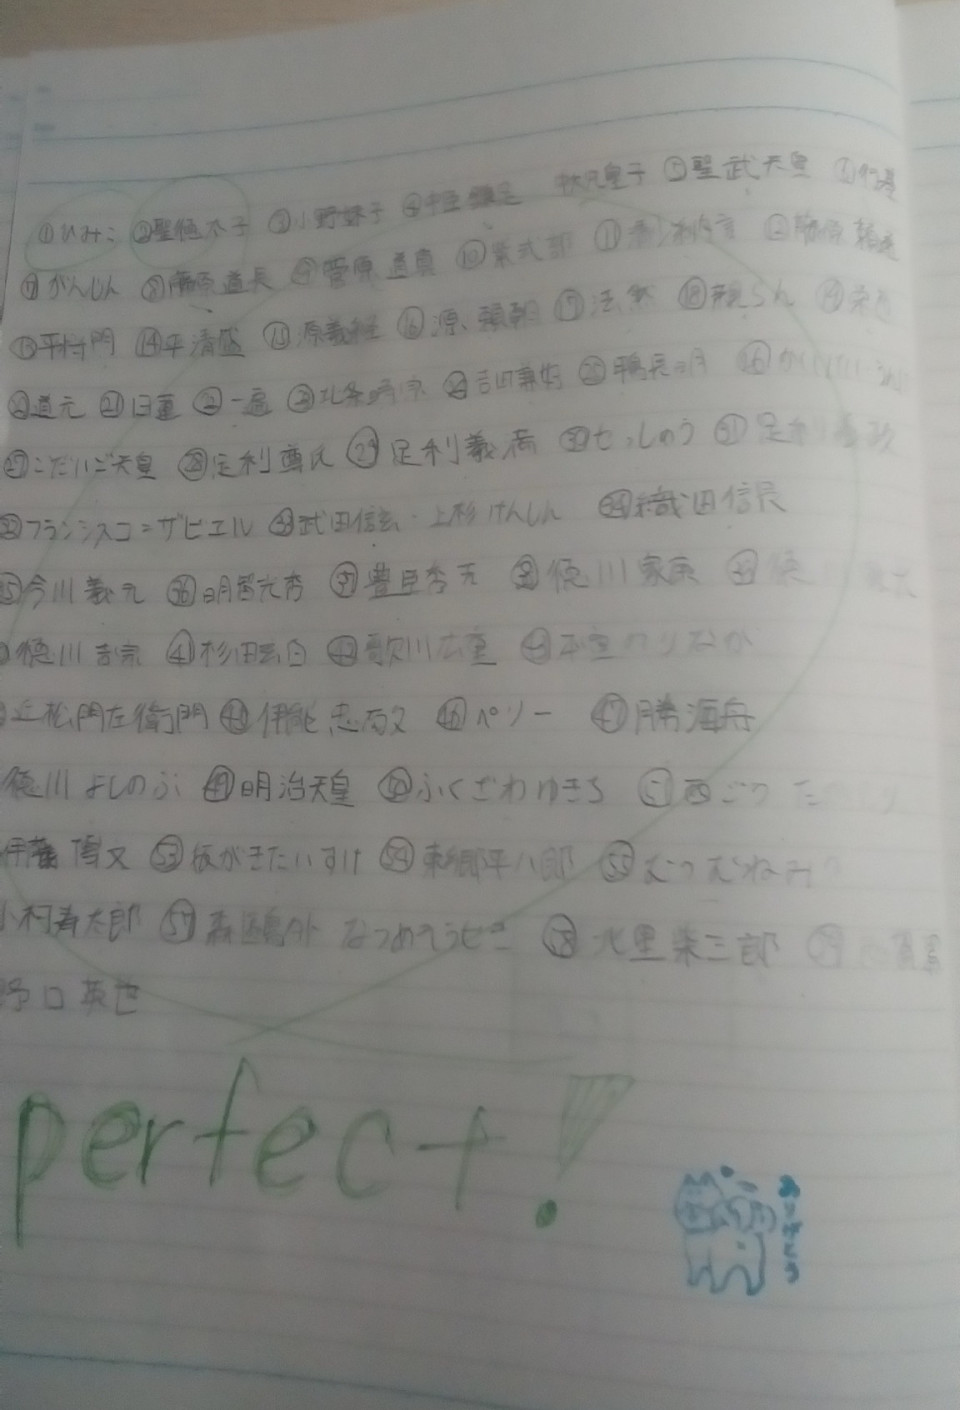 ①ひみこ ②聖徳太子 ③小野妹子 ④中臣鎌足 皇子 ⑤聖武天皇 ⑥行基
⑦がんじん ⑧藤原道長 ⑨菅原道真 ⑩紫式部 ⑪ ⑫
⑬平将門 ⑭平清盛 ⑮源義経 ⑯源頼朝 ⑰法然 ⑱親らん ⑲栄西
⑳道元 ㉑日蓮 ㉒一遍 ㉓北条時宗 ㉔吉田兼好 ㉕鴨長明 ㉖
㉗ごだいご天皇 ㉘足利尊氏 ㉙足利義満 ㉚せっしゅう ㉛足利義政
㉜フランシスコ=ザビエル ㉝武田信玄・上杉けんしん ㉞織田信長
㉟今川義元 ㊱明智光秀 ㊲豊臣秀吉 ㊳徳川家康 ㊴徳
徳川吉宗 ㊶杉田玄白 ㊷歌川広重 ㊸本宣のりなが
近松門左衛門 伊能忠敬 ㊻ペリー ㊼勝海舟
徳川よしのぶ ㊾明治天皇 ㊿ふくざわゆきち 西ごうた
伊藤博文 板がきたいすけ 東郷平八郎 むつむねみ
小村寿太郎 森鴎外 なつめそうせき 北里柴三郎
野口英世
perfect!
ありがとう